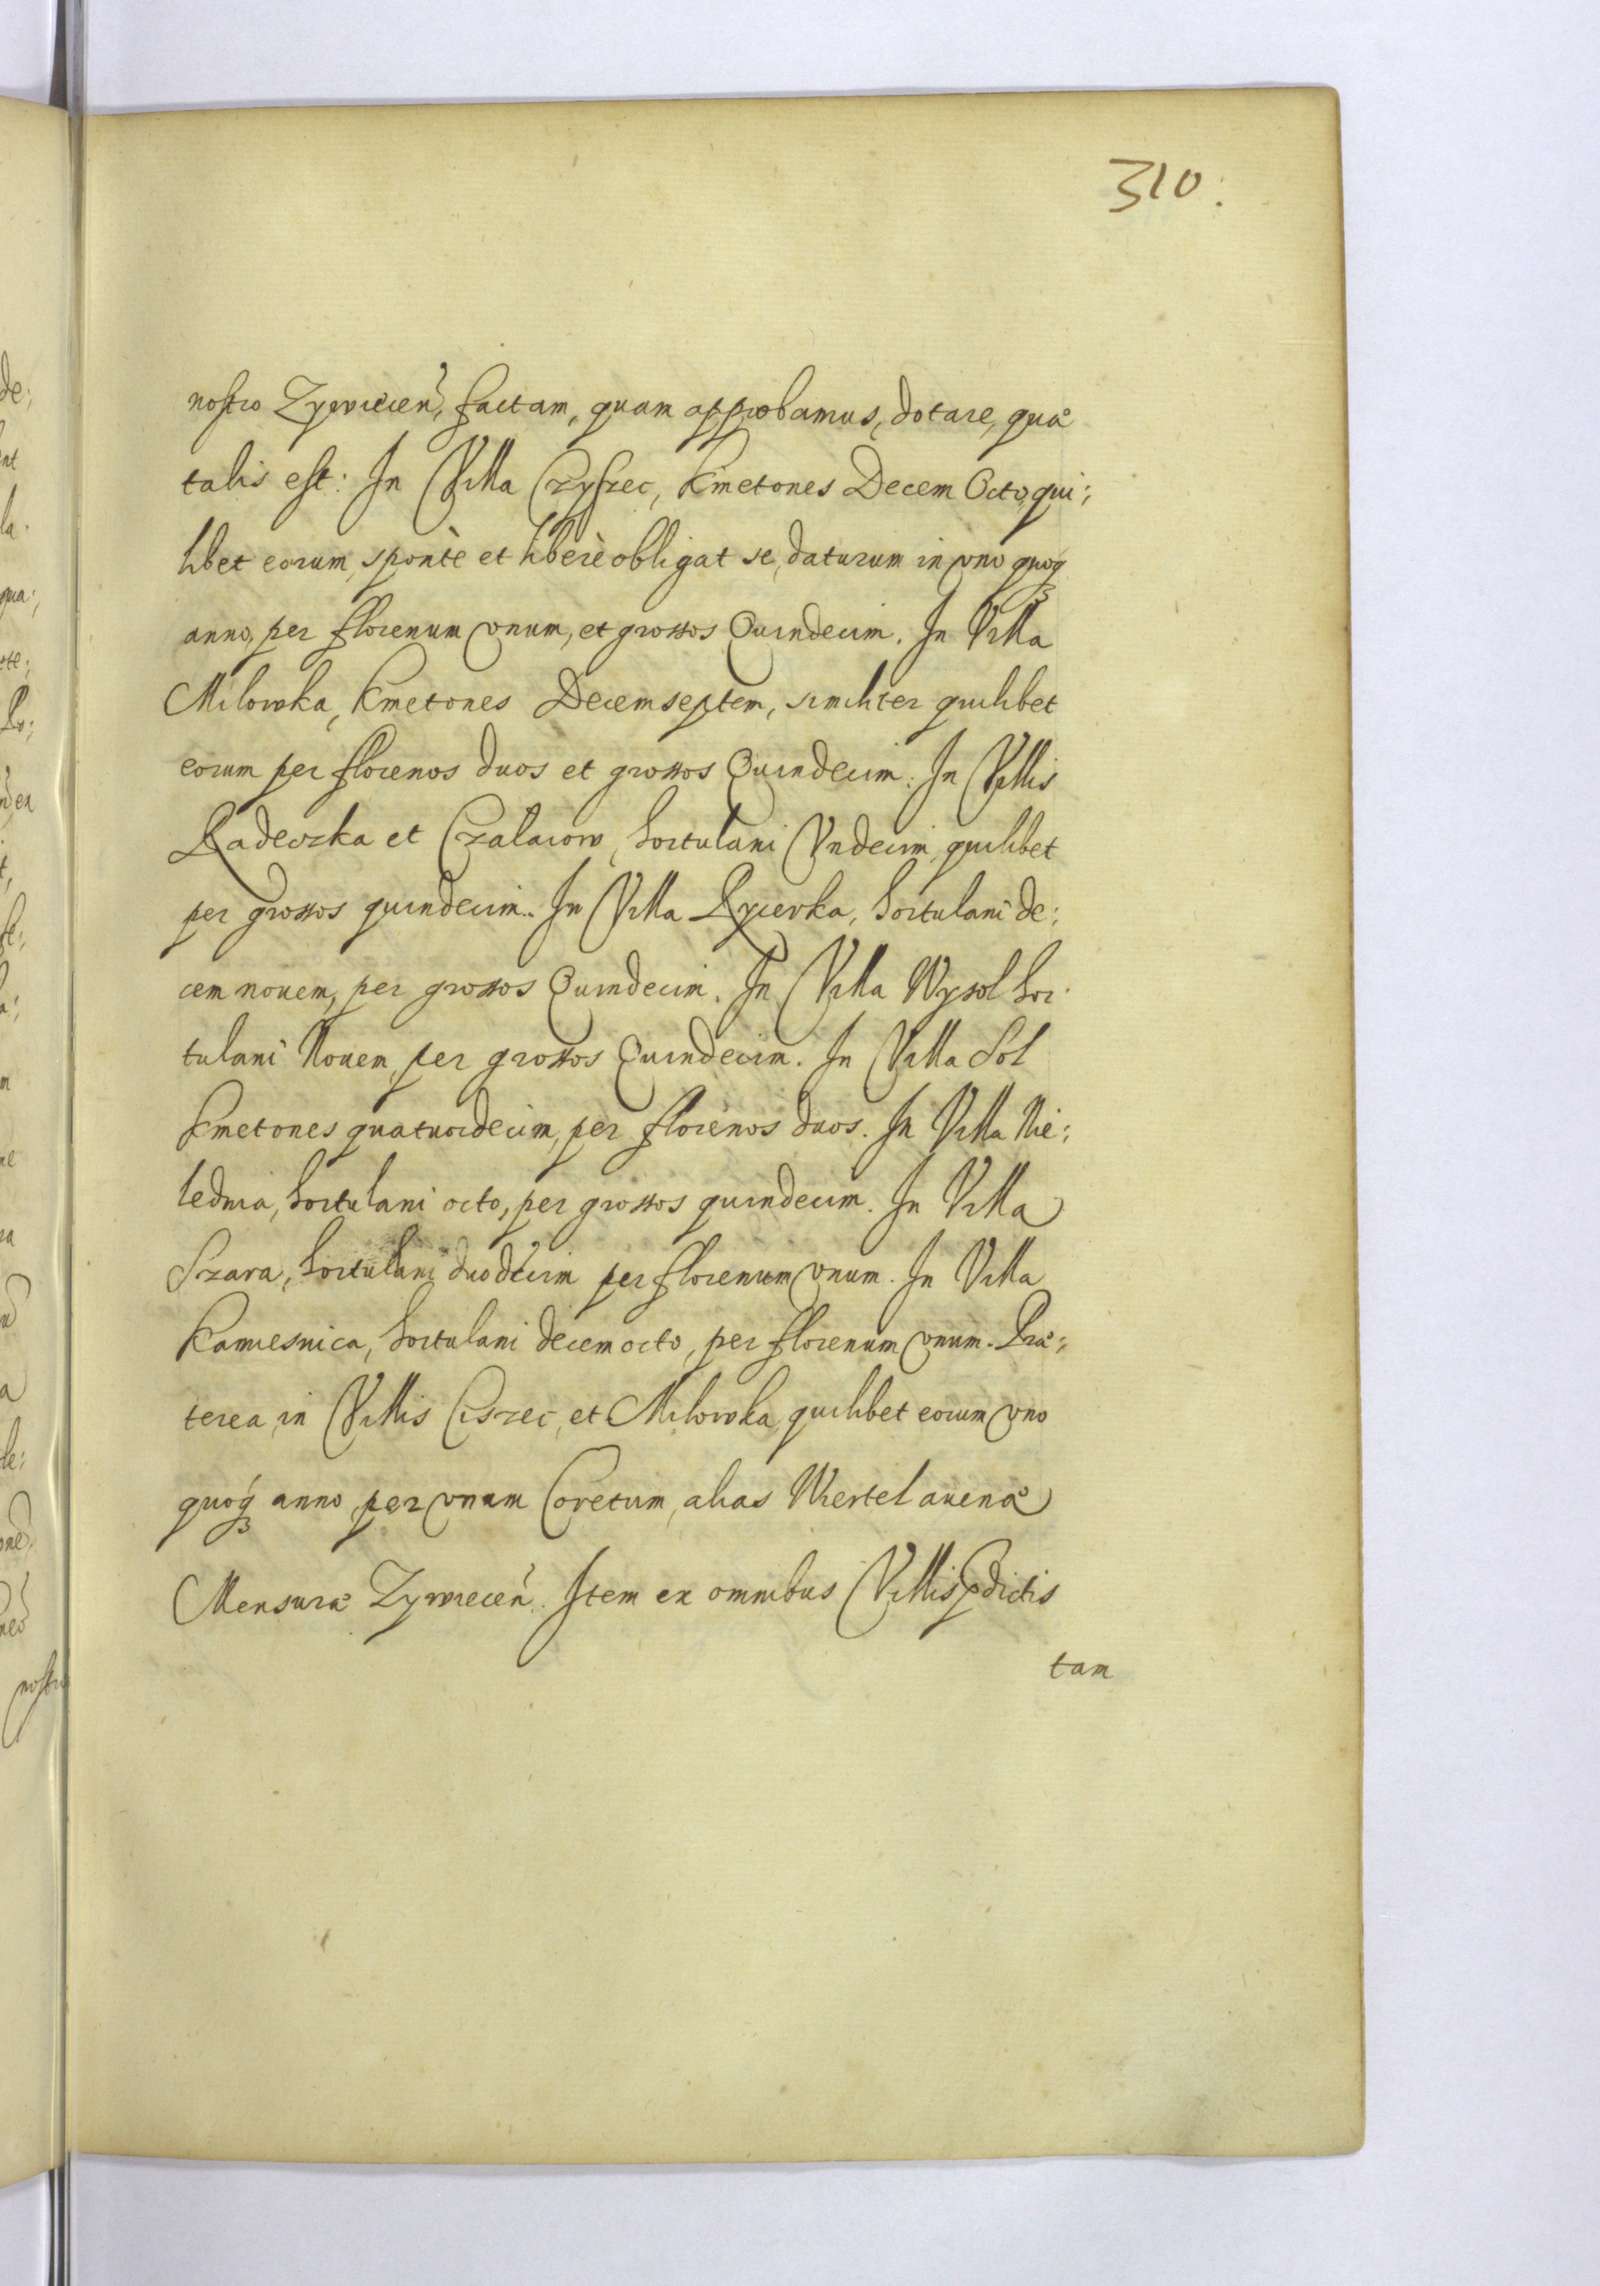 310.
nostro Zywiecen̄, factam, quam approbamus, dotare, quæ
talis est: In Villa Czyszec, Kmetones Decem Octo, qui:
libet eorum, spontè et liberè obligat se, daturum in vno quoq̨
anno, per florenum vnum, et grossos Quindecim. In Villa
Milowka, Kmetones Decemseptem, similiter quilibet
eorum per florenos duos et grossos Quindecim. In Villis
Radeczka et Czalaiow, hortulani Vndecim, quilibet
per grossos quindecim. In Villa Rycerka, hortulani de:
cem nouem, per grossos Quindecim. In Villa Wysol hor:
tulani Nouem, per grossos Quindecim. In Villa Sol
Kmetones quatuordecim, per florenos duos. In Villa Nie:
ledwia, hortulani octo, per grossos quindecim. In Villa
Szara, hortulani duodecim per florenum vnum. In Villa
Kamesnica, hortulani decem octo, per florenum vnum. Præ:
terea, in Villis Ciszec, et Milowka, quilibet eorum vno
quoq̨ anno, per vnum Coretum, alias Wiertel auenæ
Mensuræ Zywiecen̄. Item ex omnibus Villis pdictis
tam
de:
nt
la.
qua:
nostro